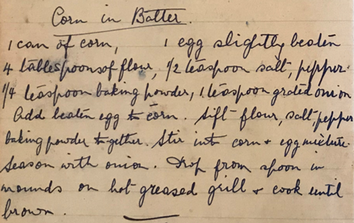 Corn in Batter.
1 can of corn, 1 egg slightly beaten
4 tablespoons of flour, 1/2 teaspoon salt, pepper.
1/4 teaspoon baking powder, 1 teaspoon grated onion
Add beaten egg to corn. Sift flour, salt, pepper
baking powder together. Stir into corn + egg mixture.
Season with onion. Drop from spoon in
mounds on hot greased grill & cook until
brown.